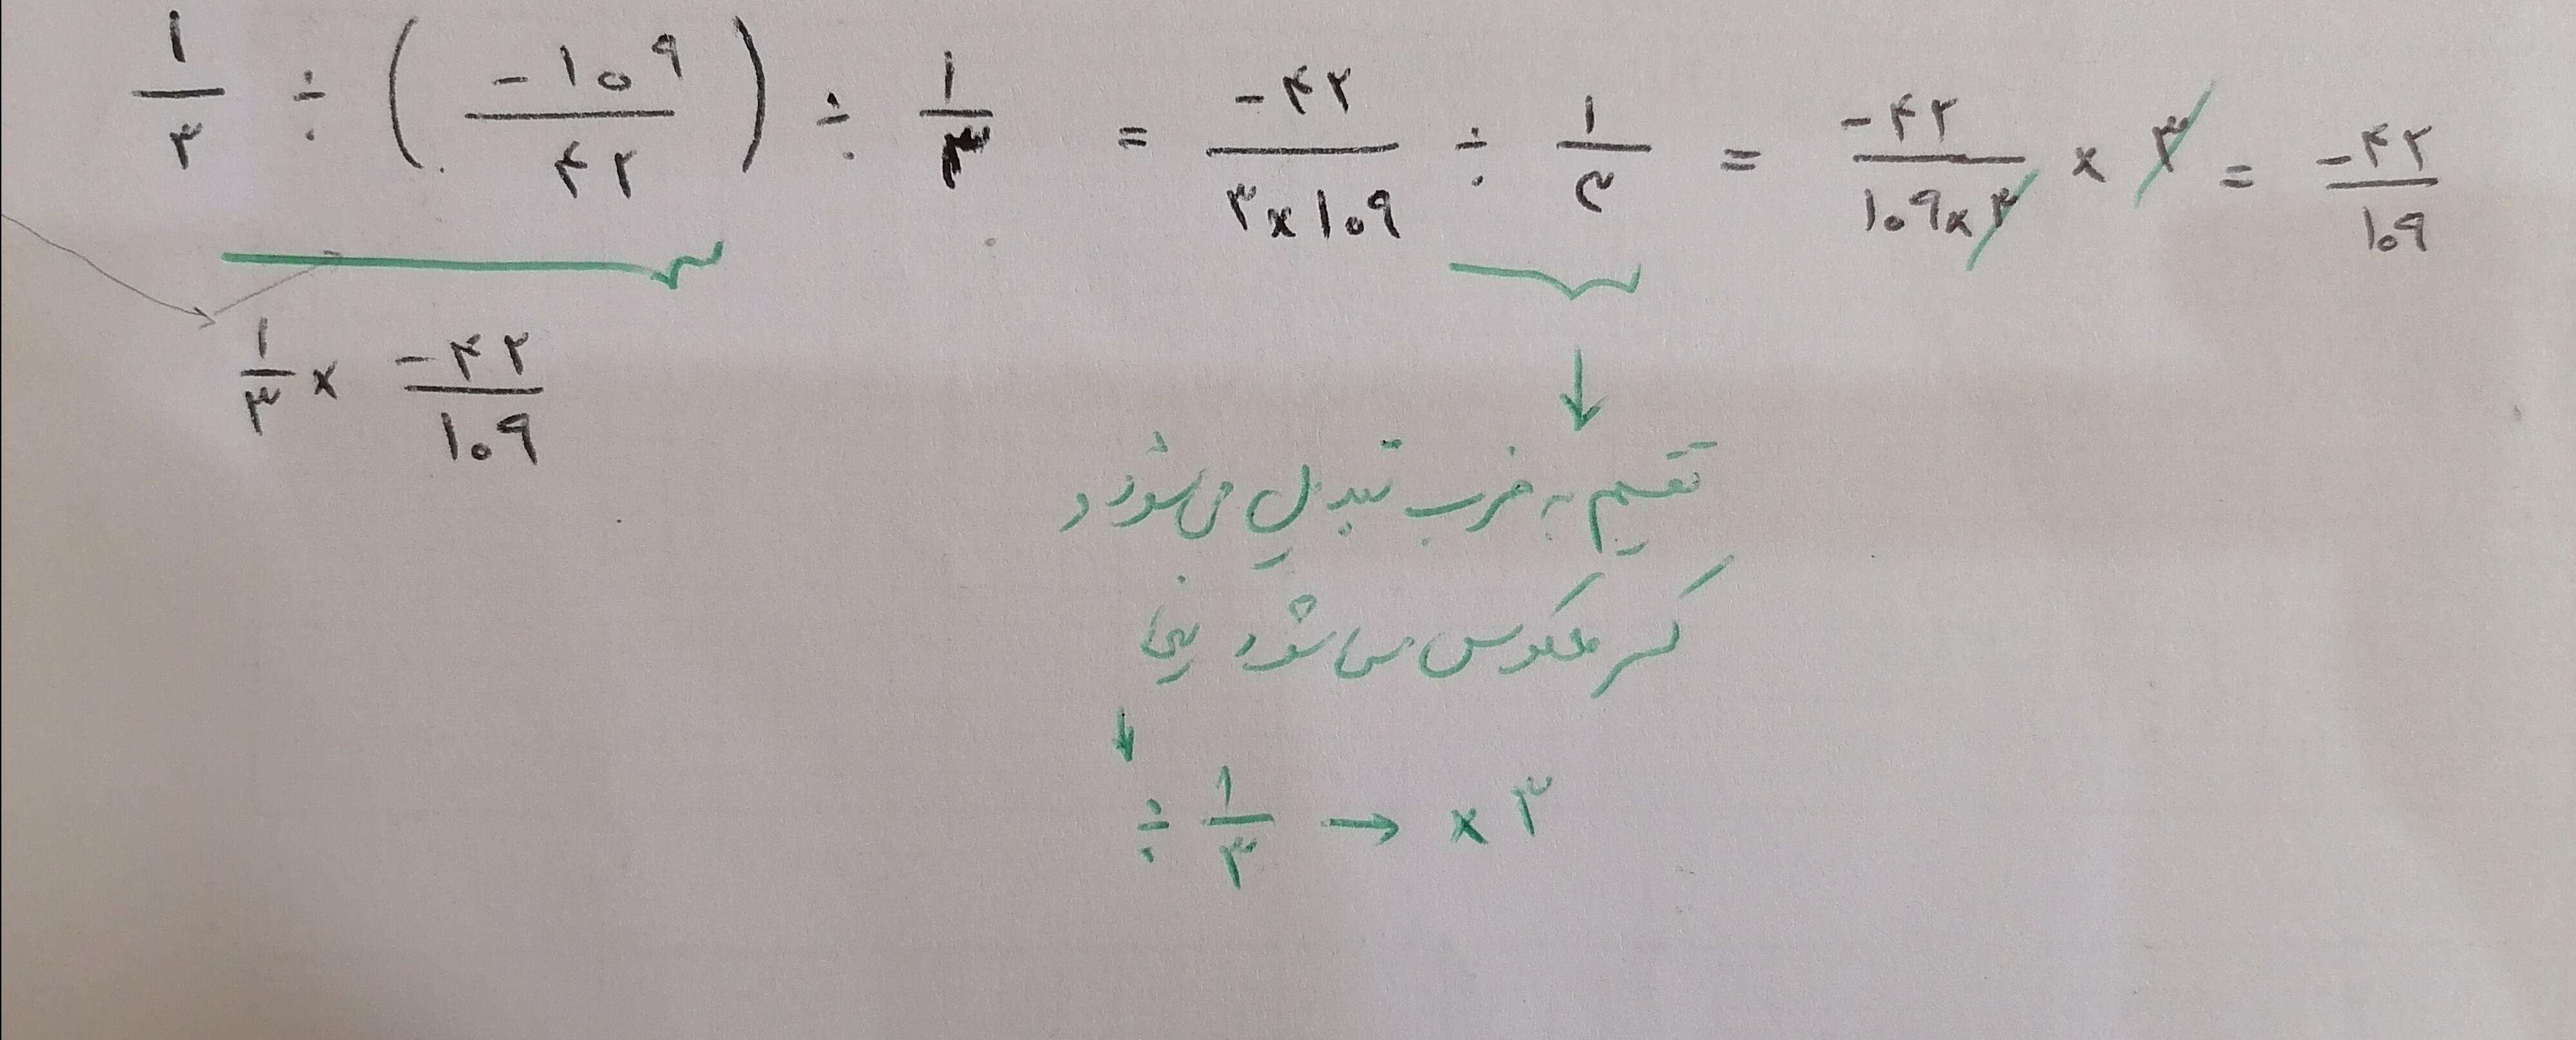 ۱/۳ ÷ (-۱۰۹/۴۲) ÷ ۱/۳ = -۴۲/۳×۱۰۹ ÷ ۱/۳ = -۴۲/۱۰۹×۳ × ۳ = -۴۲/۱۰۹
۱/۳ × -۴۲/۱۰۹
تقسیم به ضرب تبدیل می‌شود و
کسر معکوس می‌شود یعنی
÷ ۱/۳ → × ۳